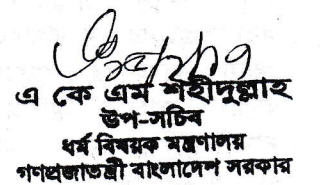 এ কে এম শহীদুল্লাহ
উপ-সচিব
ধর্ম বিষয়ক মন্ত্রণালয়
গণপ্রজাতন্ত্রী বাংলাদেশ সরকার